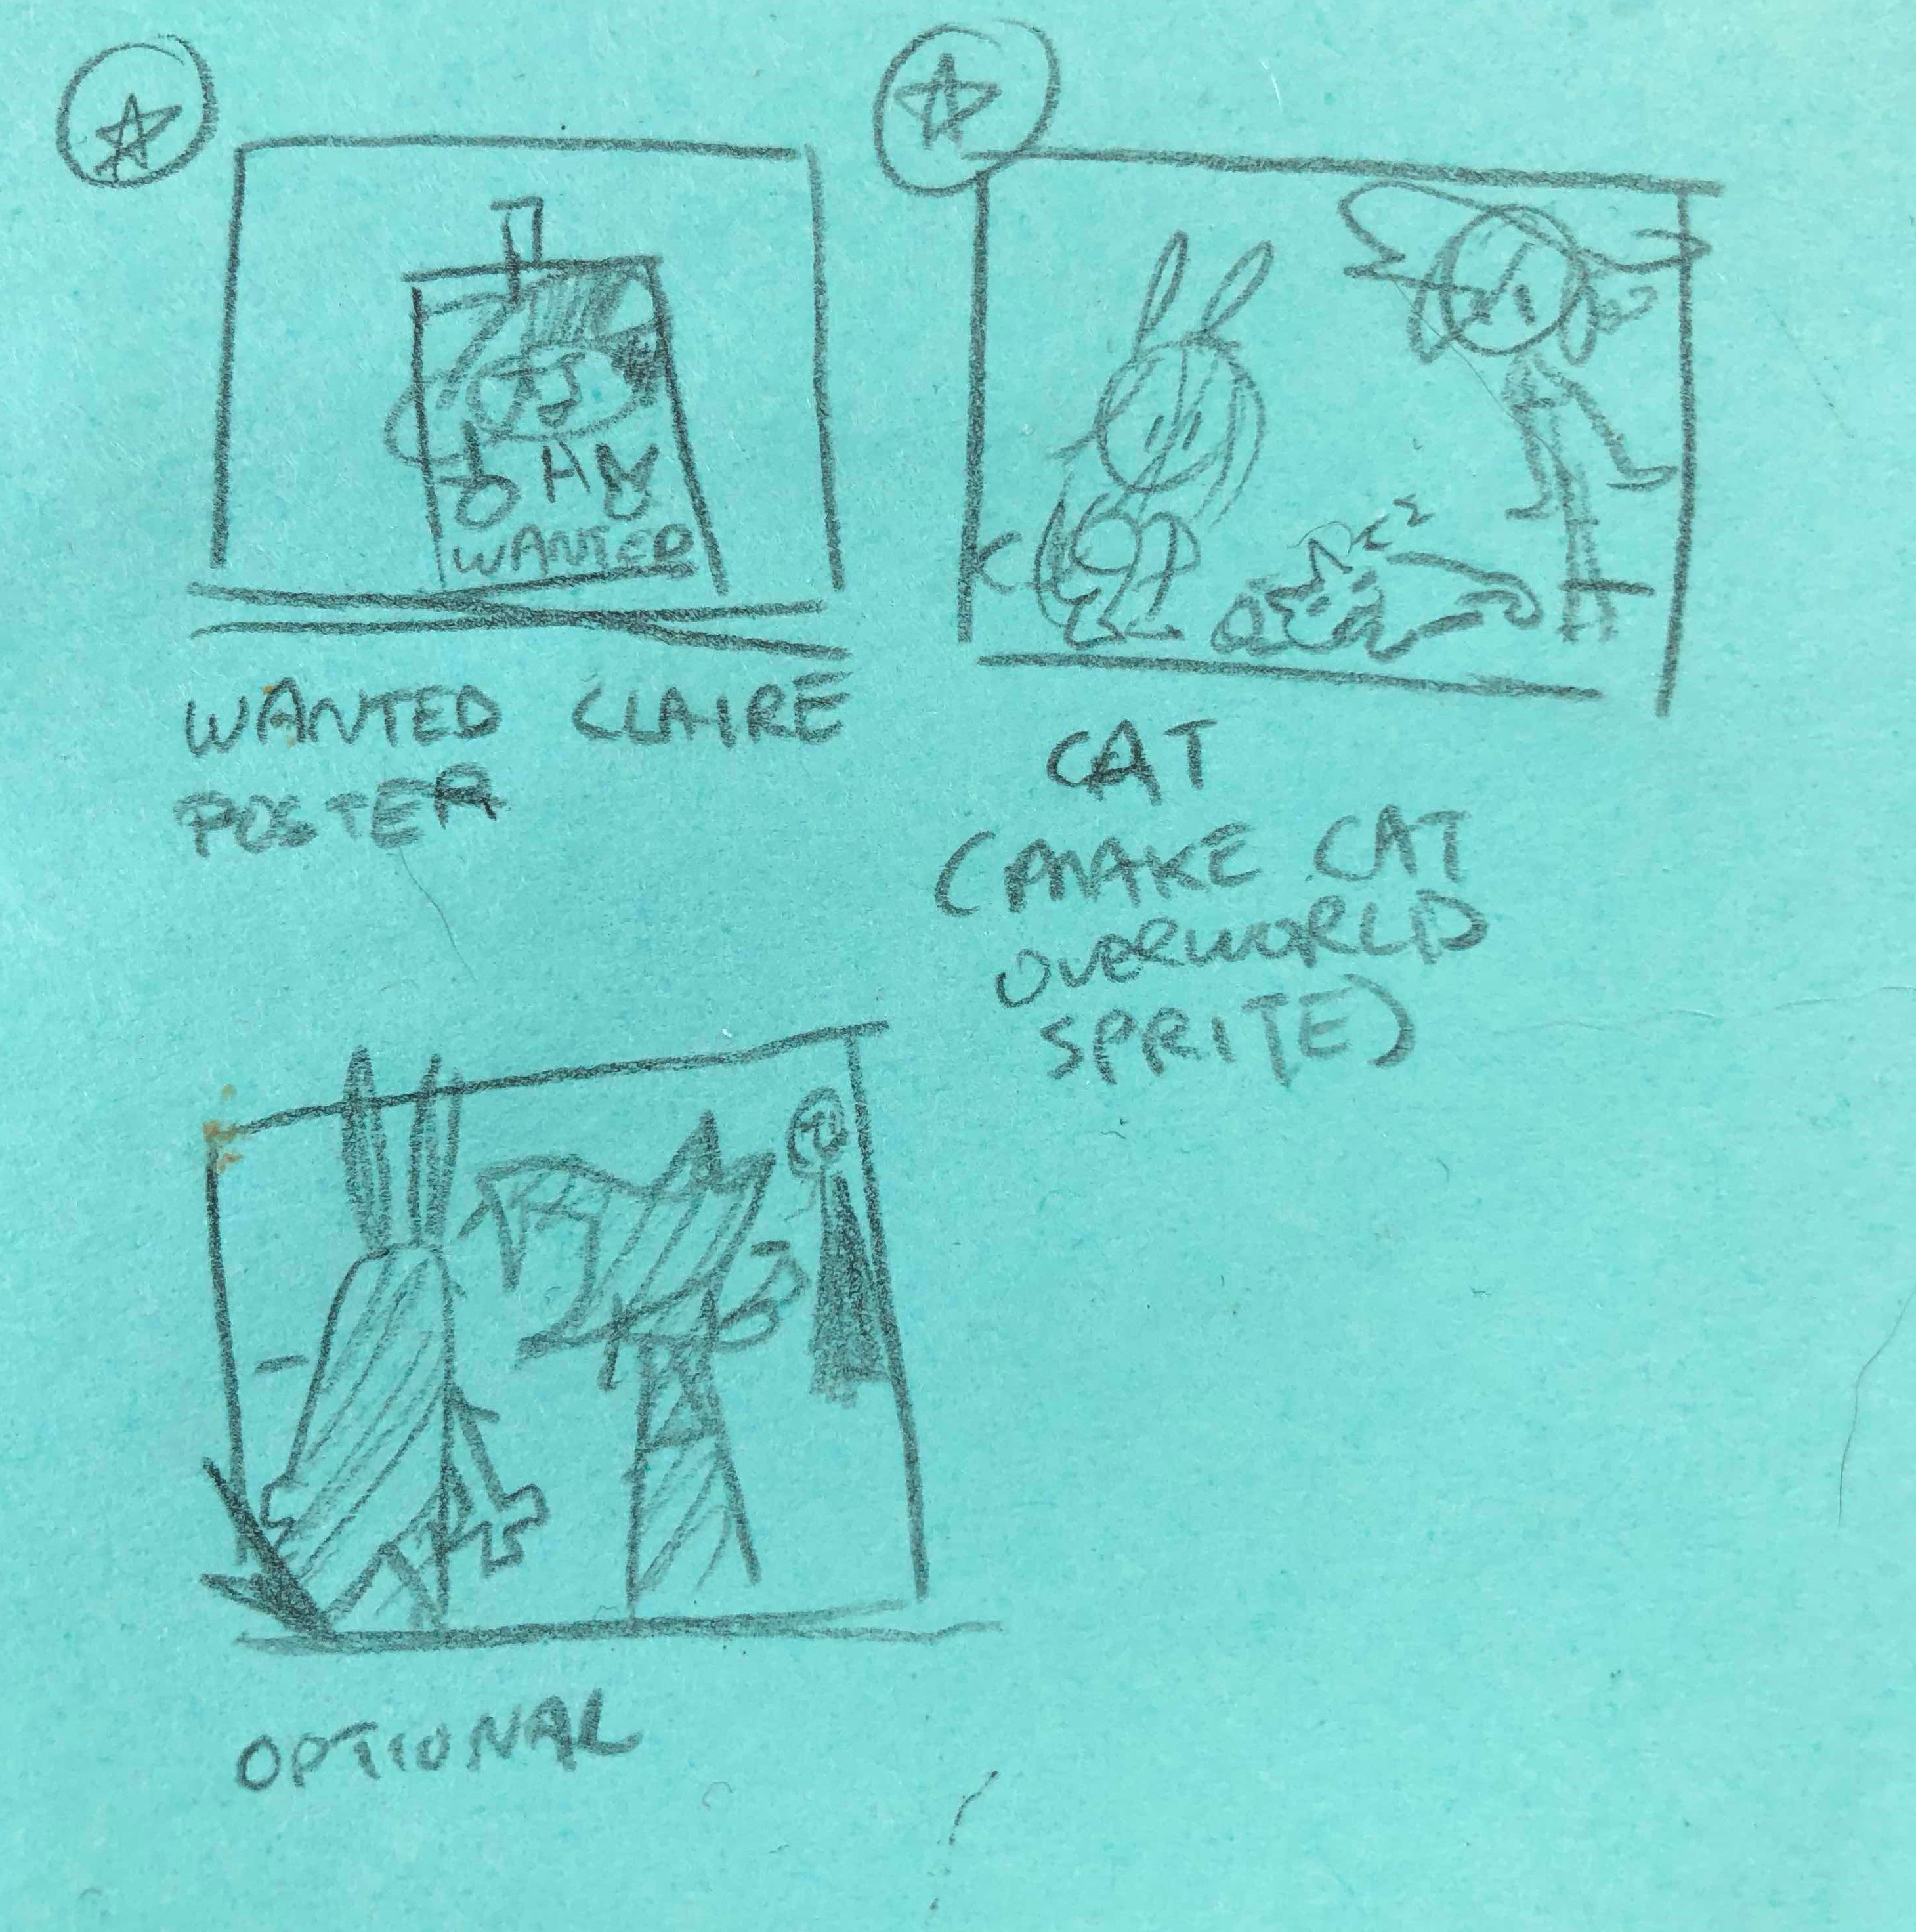 WANTED
WANTED CLAIRE
POSTER
z z
CAT
(MAKE CAT
OVERWORLD
SPRITE)
OPTIONAL